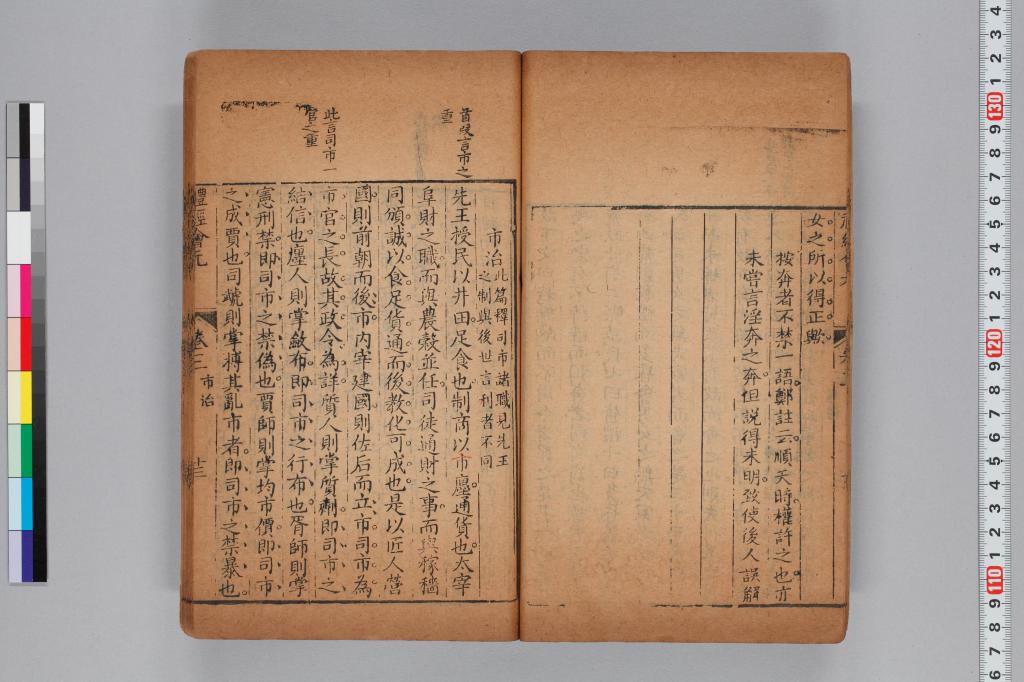 女之所以得正歟
按奔者不禁一語鄭註云順天時權許之也亦
未嘗言淫奔之奔但說得未明致使後人誤解
首段言市之
重
此言司市一
官之重
市治此篇釋司市諸職見先王
之制與後世言利者不同
先王授民以井田足食也制商以市廛通貨也太宰
阜財之職而與農穀並任司徒通財之事而與稼穡
同頒誠以食足貨通而後教化可成也是以匠人營
國則前朝而後市内宰建國則佐后而立市司市為
市官之長故其政令為詳質人則掌質劑即司市之
結信也廛人則掌斂布即司市之行布也胥師則掌
憲刑禁即司市之禁偽也賈師則掌均市價即司市
之成賈也司虣則掌搏其亂市者即司市之禁暴也
禮經會元
卷三
市治
十三